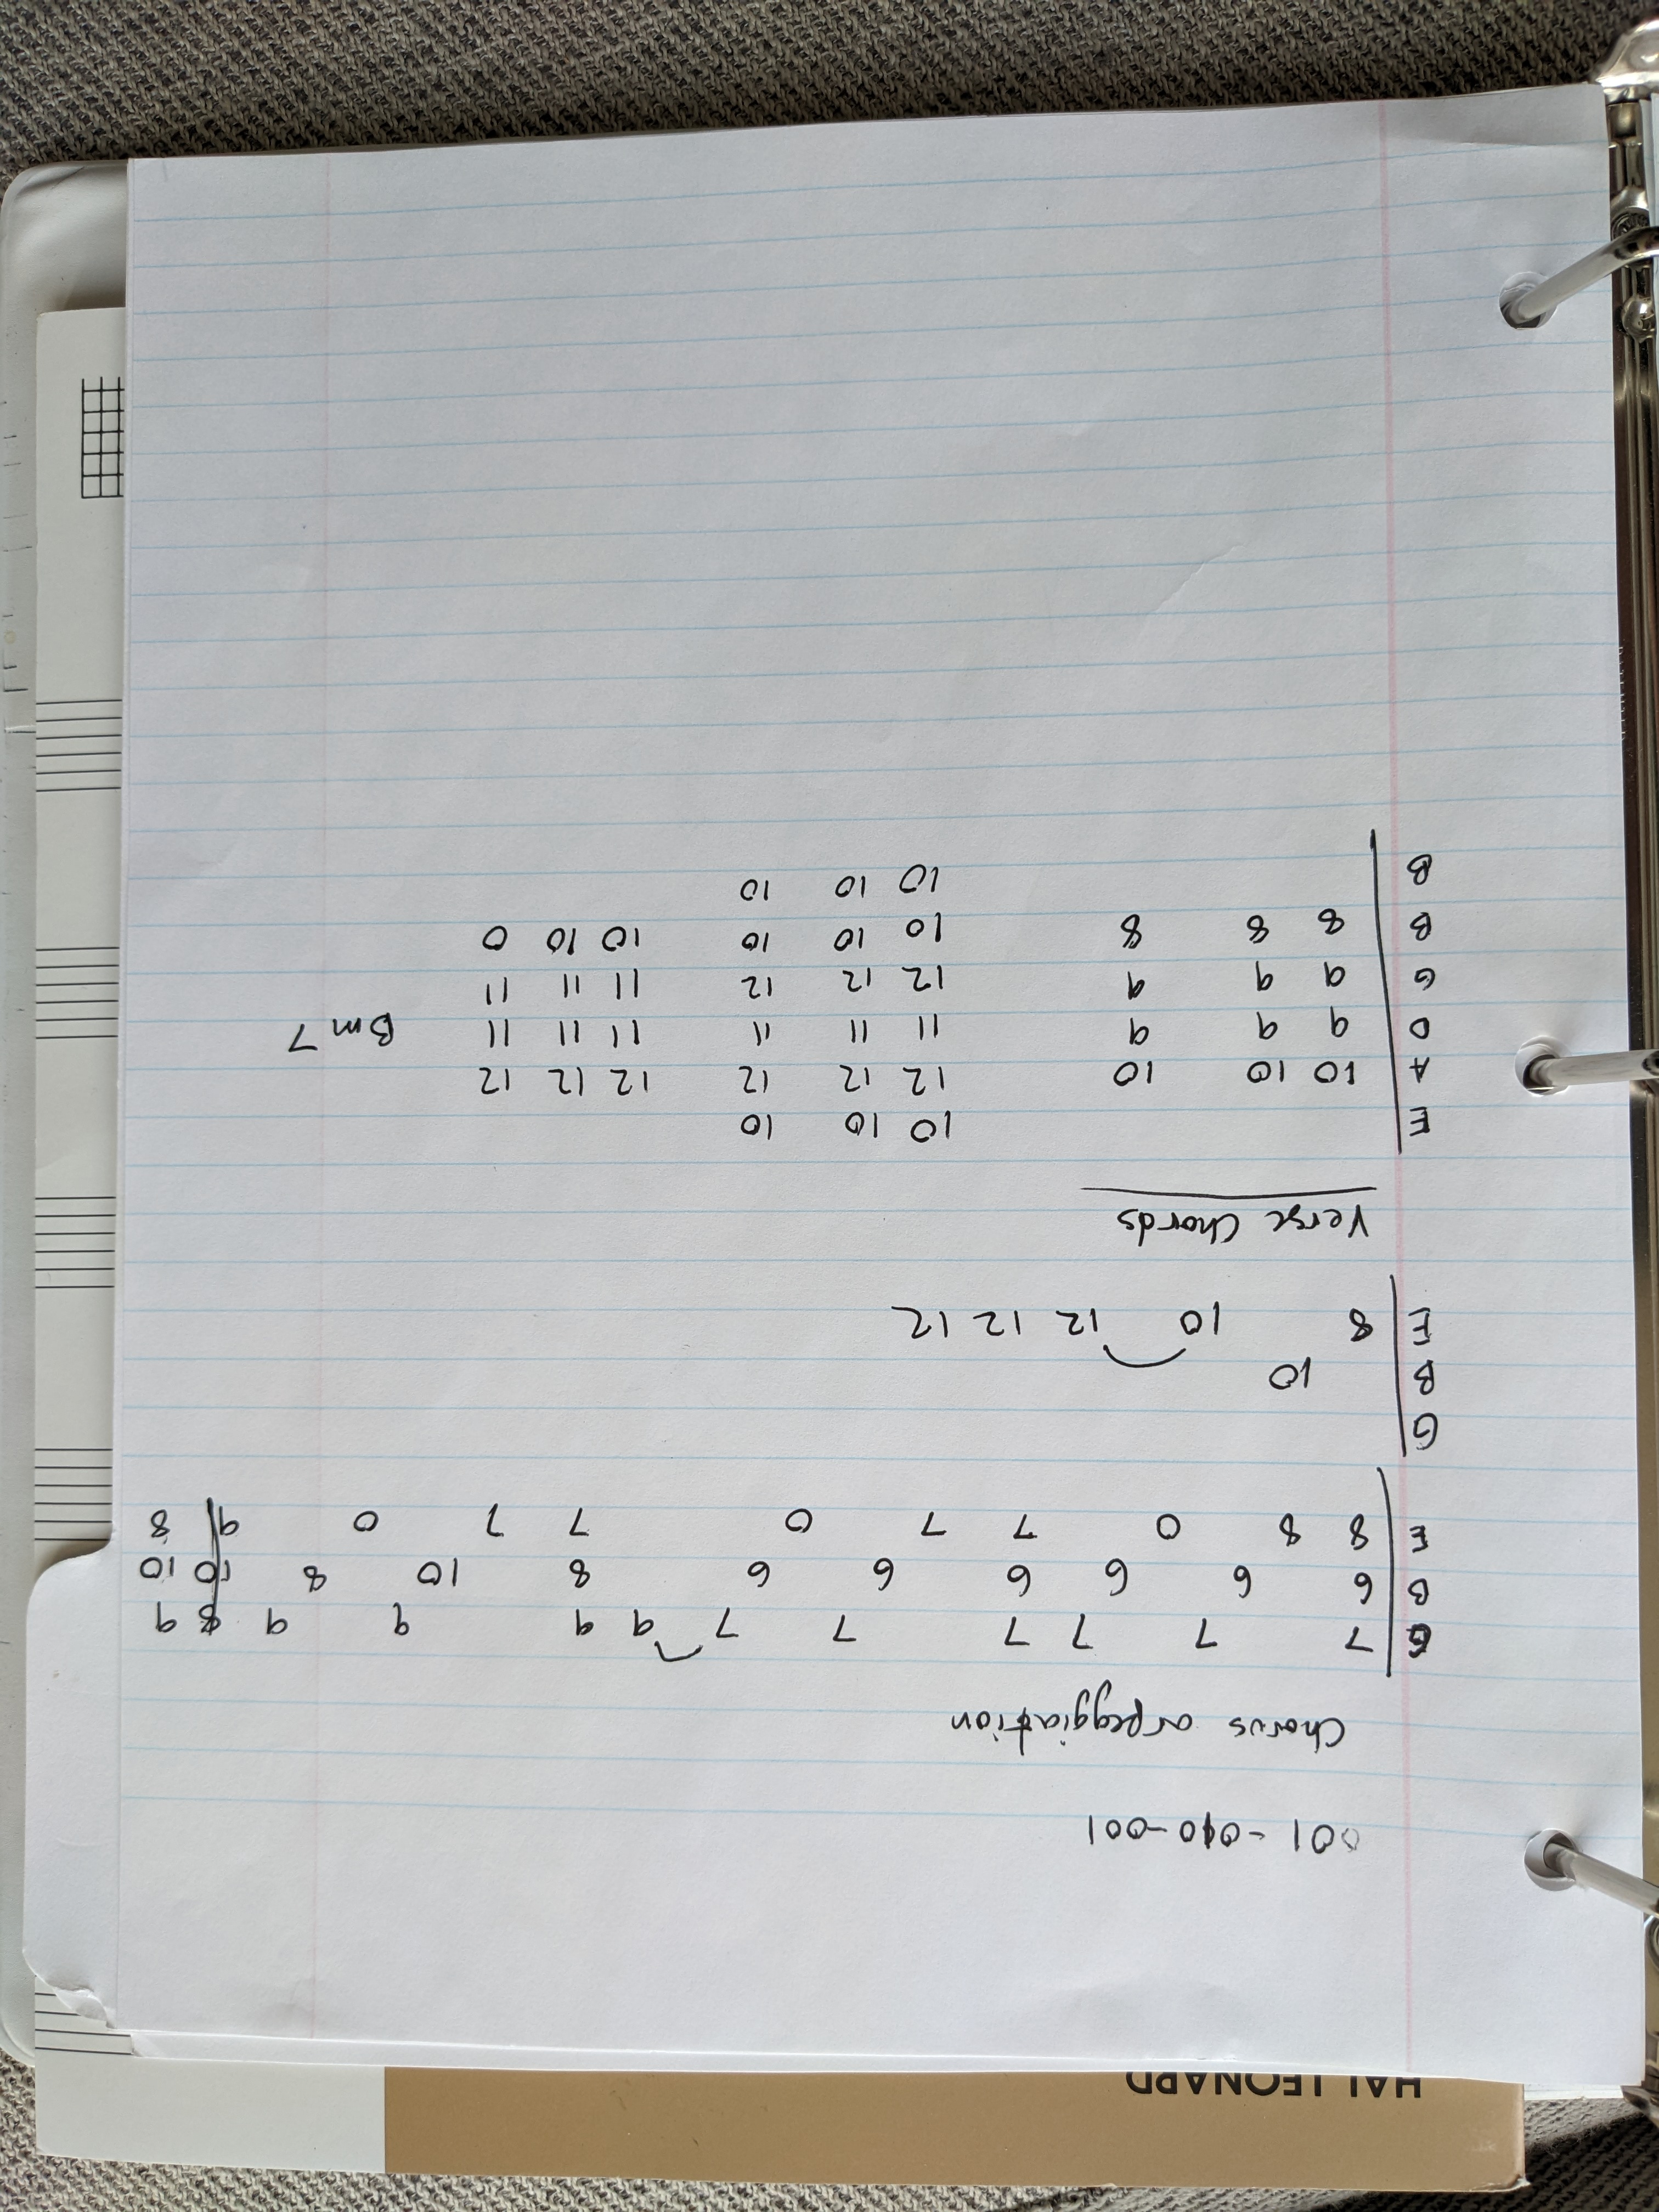 HAL LEONARD
001-010-001
Chorus arpeggiation
G 7 7 7 7 7 7 9 9 9 9 8 9
B 6 6 6 6 6 6 8 10 8 10 10
E 8 8 0 7 7 0 7 7 0 9 8
G
B 10
E 8 10 12 12 12
Verse Chords
E 10 10 10
A 10 10 10 12 12 12 12 12 12
D 9 9 9 11 11 11 11 11 11 Bm7
G 9 9 9 12 12 12 11 11 11
B 8 8 8 10 10 10 10 10 0
B 10 10 10